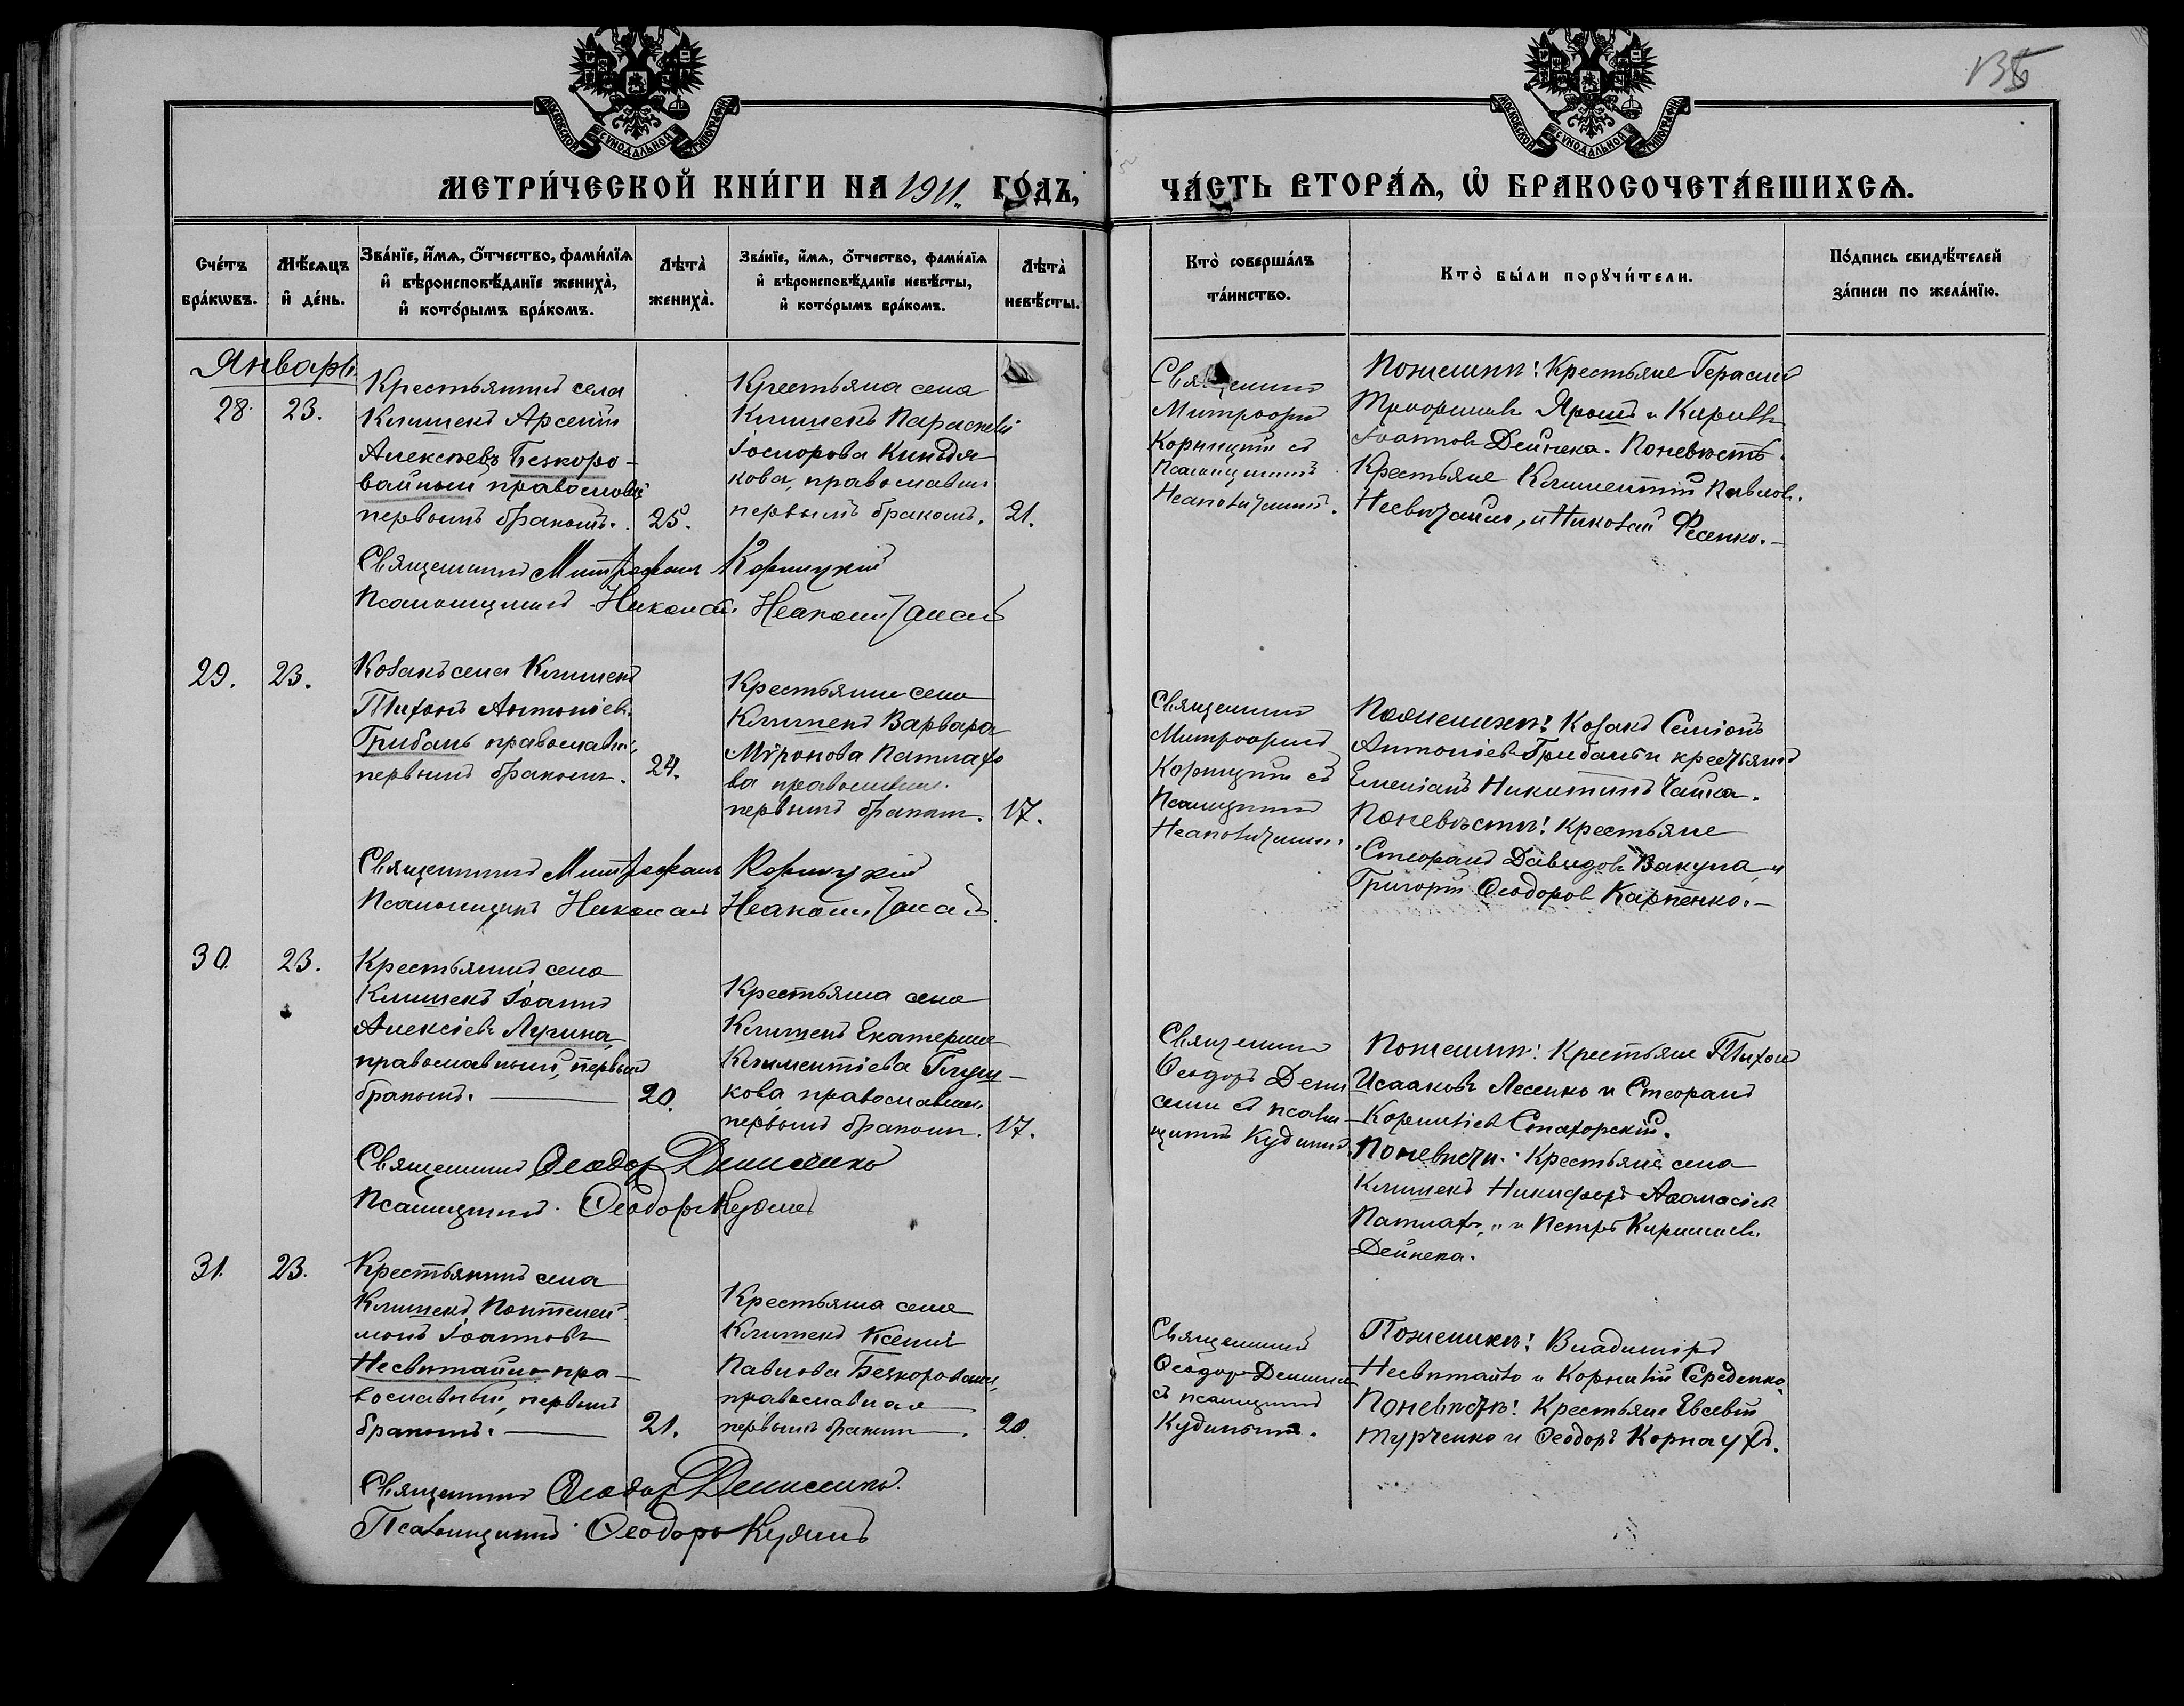 135
МОСКОВСКОЙ СѴНОДАЛЬНОЙ ТИПОГРАФІИ
МОСКОВСКОЙ СѴНОДАЛЬНОЙ ТИПОГРАФІИ
МЕТРИ́ЧЕСКОЙ КНИ́ГИ НА 1911. ГО́ДЪ,
ЧА́СТЬ ВТОРА́Ѧ, Ѡ҆ БРАКОСОЧЕТА́ВШИХСѦ.
Сче́тъ
бра́кѡвъ.
Мѣ́сѧцъ
и҆ де́нь.
Зва́нїе, и҆́мѧ, ѻ҆́тчество, фами́лїѧ
и҆ вѣроисповѣ́данїе жениха̀,
и҆ кото́рымъ бра́комъ.
Лѣта̀
жениха̀.
Зва́нїе, и҆́мѧ, ѻ҆́тчество, фами́лїѧ
и҆ вѣроисповѣ́данїе невѣ́сты,
и҆ кото́рымъ бра́комъ.
Лѣта̀
невѣ́сты.
Кто̀ соверша́лъ
та́инство.
Кто̀ бы́ли порꙋчи́тели.
По́дпись свидѣ́телей
за́писи по жела́нїю.
Январь.
28. 23.
Крестьянинъ села
Климекъ Арсеній
Алексѣевъ Безкоро-
вайный православный
первымъ бракомъ. 25.
Крестьяна села
Климекъ Параскевія
кова, православн.
первымъ бракомъ. 21.
Священникъ
Митрофан
Корницкій съ
Псаломщикомъ
Пожених: Крестьяне Герасим
Ярошъ и Кирилъ
Іоанновъ Дейнека. Поневѣстѣ.
Крестьяне Климентій Павлов.
Несвѣтайло, и Николай Фесенко.-
Священникъ Митрофанъ Корницкій
Псаломщикъ Николай
29. 23.
Козакъ села Климекъ
Тихонъ Антоніев.
Грибань православн.
первымъ бракомъ. 24.
Крестьянка села
Климекъ Варвара
Мѵронова Патлахо
ва православн.
первымъ бракомъ. 17.
Священникъ
Митрофанъ
Корницкій съ
Псаломщикъ
Поженихѣ: Козакъ Семіонъ
Антоніевъ Грибань и крестьянинъ
Емеліанъ Никитинъ Чайка.
Поневѣстѣ: Крестьяне
Стефанъ Давидовъ Вакула и
Григорій Ѳеодоровъ Карпенко.-
Священникъ Митрофанъ Корницкій
Псаломщикъ Николай
30. 23.
Крестьянинъ села
Климекъ Іоаннъ
Алексіевъ Лучина,
православный, первымъ
бракомъ. 20.
Крестьянка села
Климекъ Екатерина
Климентіева Глущ-
кова православная
первымъ бракомъ. 17.
Священникъ
Ѳеодоръ Дени
сенко съ псалом
щикомъ Кудиным.
Поженихѣ: Крестьяне Тихонъ
Исааковъ Лесенко и Стефанъ
Корниліев Стахорскій.
Поневѣстѣ: Крестьяне села
Климекъ Никифоръ Аѳанасіев
Патлахъ, и Петръ Кириллов.
Дейнека.
Священникъ Ѳеодоръ Денисенко
Псаломщикъ Ѳеодоръ Кудинъ
31. 23.
Крестьянинъ села
Климекъ Пантелей-
монъ Іоанновъ
Несвѣтайло пра-
вославный, первымъ
бракомъ. 21.
Крестьянка села
Климекъ Ксенія
Павлова Безкоровайн.
православная
первымъ бракомъ. 20.
Священникъ
Ѳеодоръ Денисен
съ псаломщикъ
Кудинымъ.
Поженихѣ: Владиміръ
Несвѣтайло и Корнилій Середенко.
Поневѣстѣ: Крестьяне Евсевій
Турченко и Ѳеодоръ Корнаухъ.
Священникъ Ѳеодоръ Денисенко.
Псаломщикъ Ѳеодоръ Кудинъ